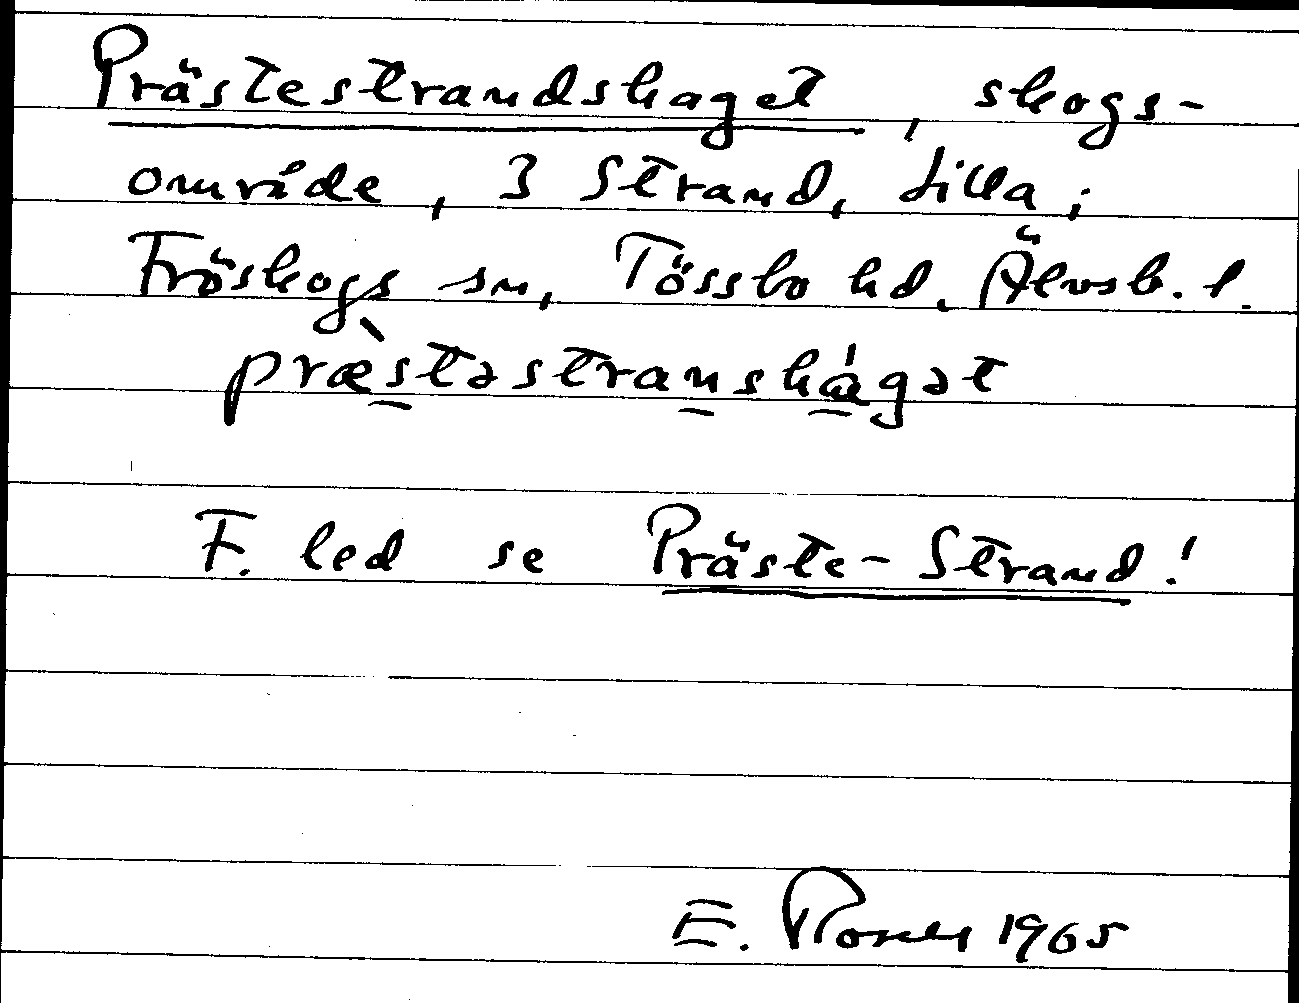 Prästestrandshaget, skogs-
område, 3 Strand, Lilla;
Fröskogs sn, Tössbo hd. Älvsb. l.
præ̀stəstranshágət
F. led se Präste-Strand!
E. 1965